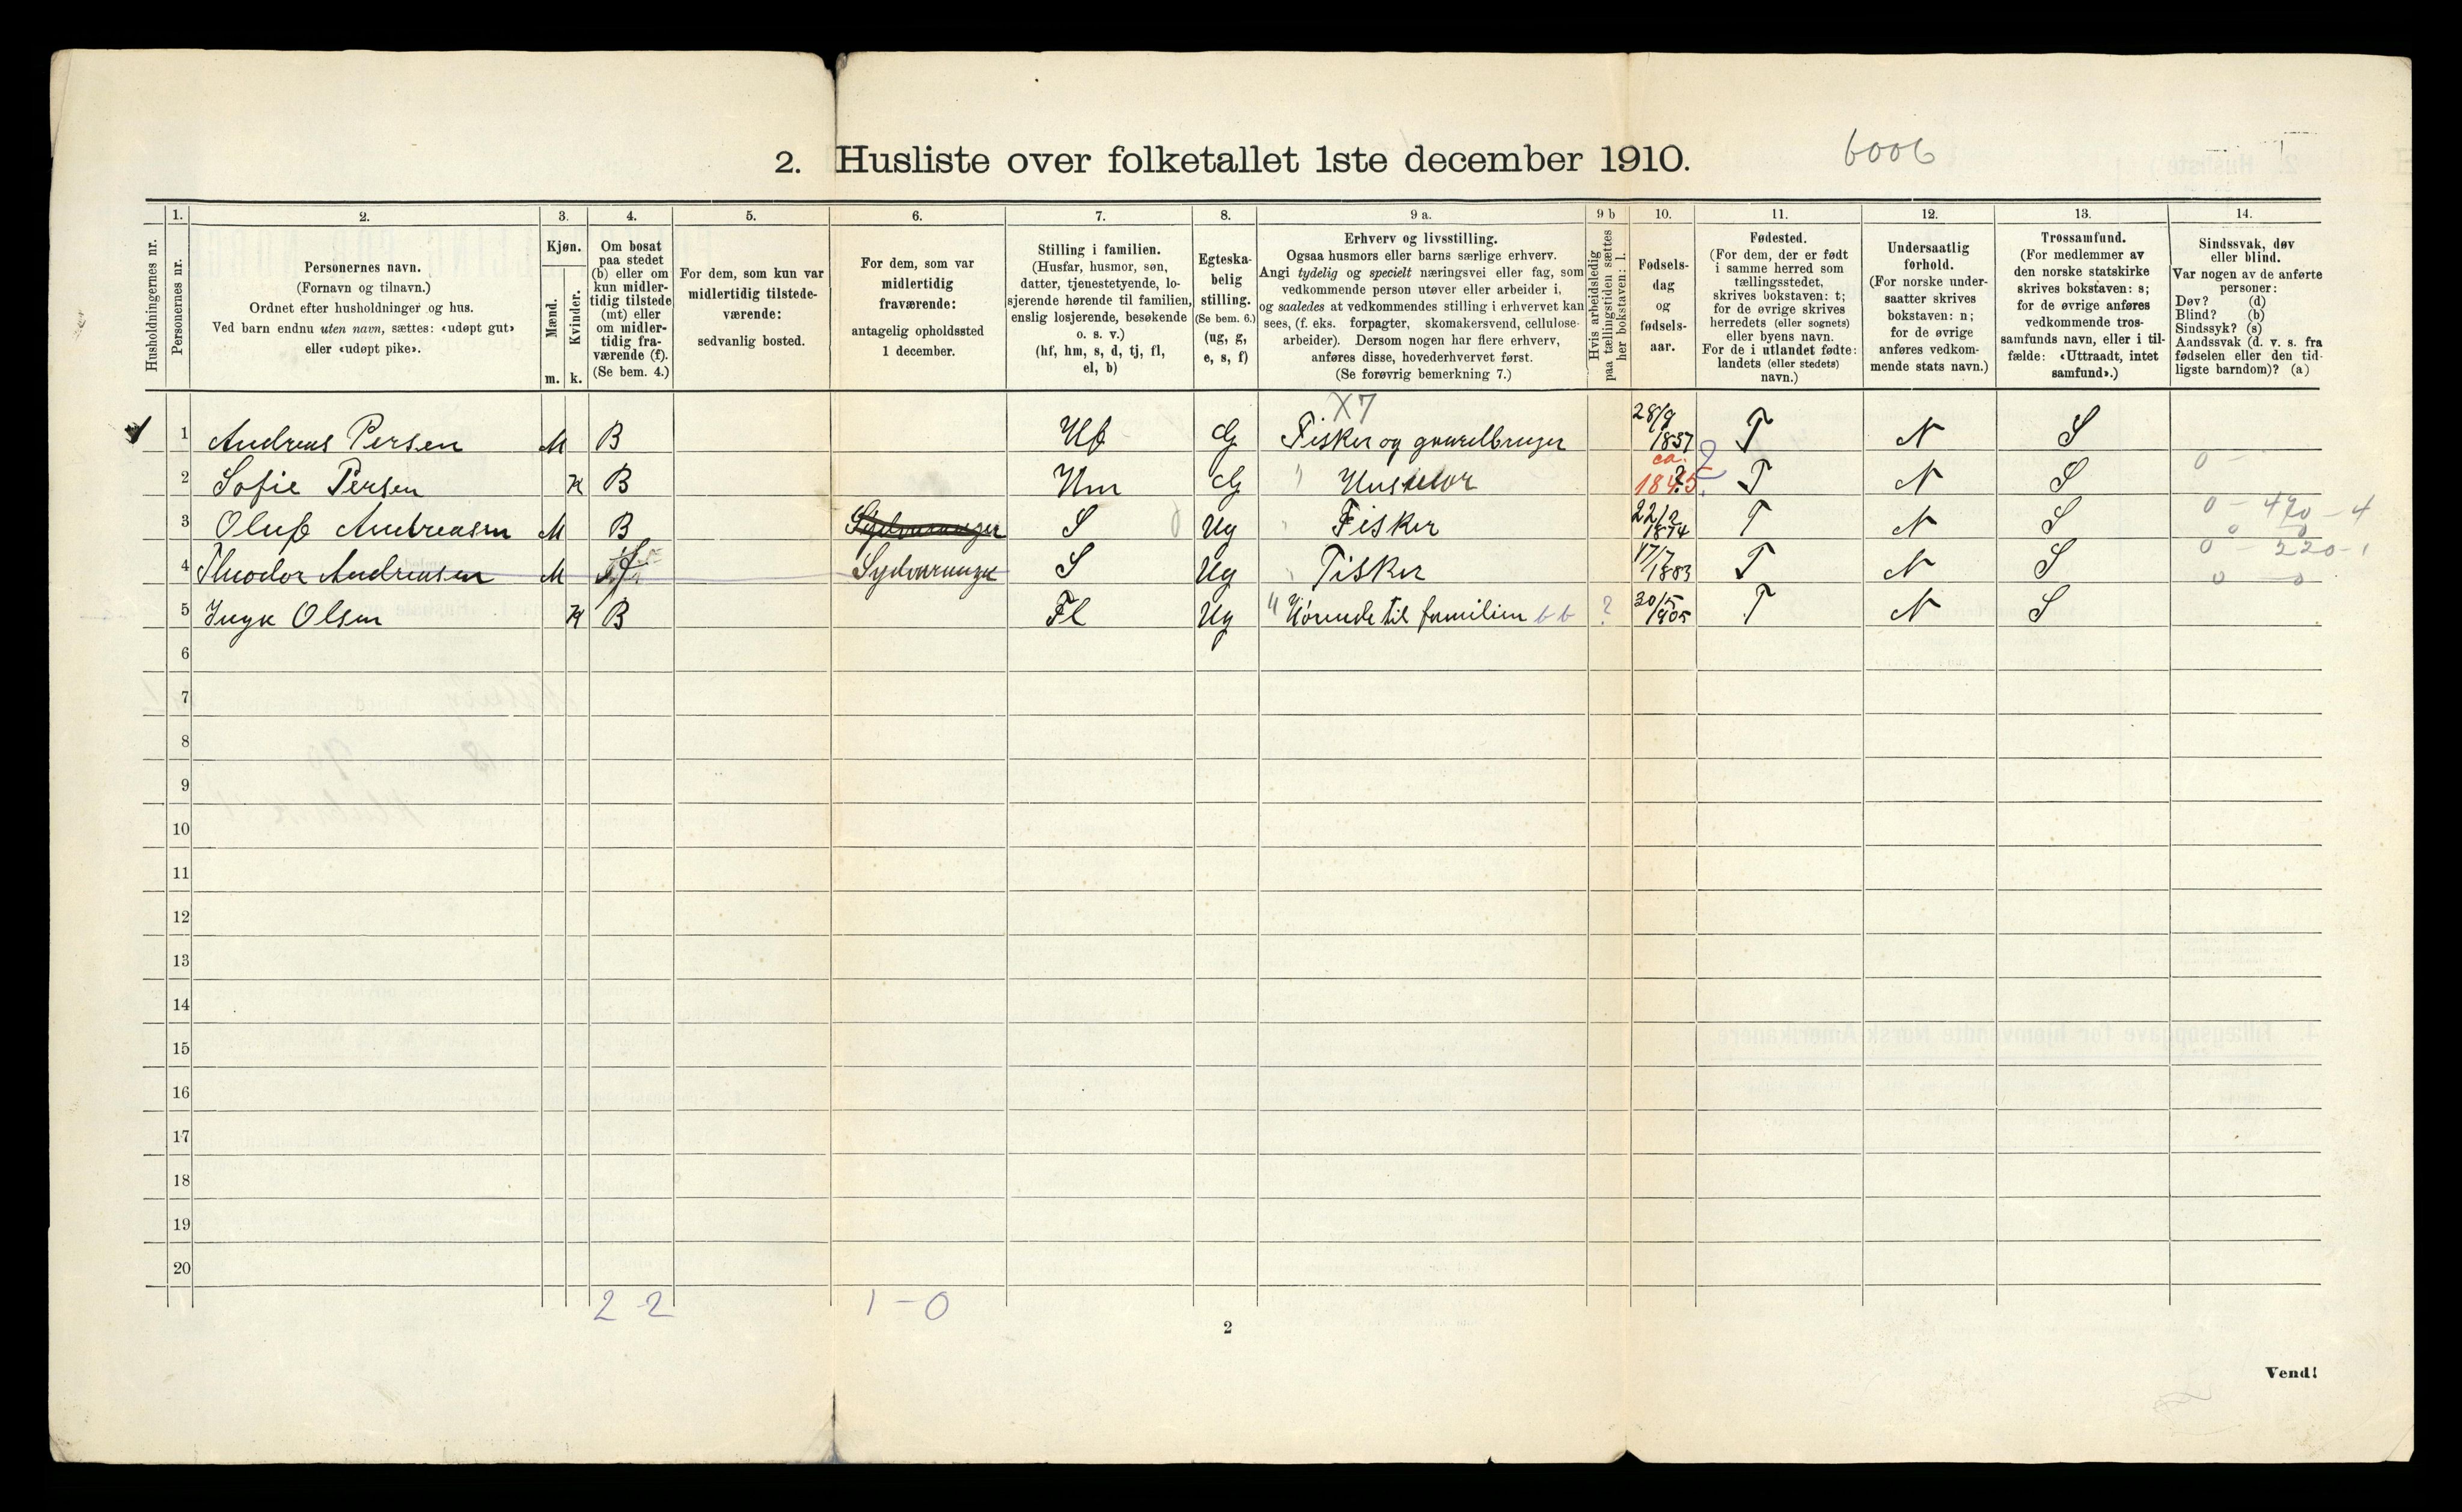 2. Husliste over folketallet 1ste december 1910. 6006
Husholdningernes nr.
1.
Personernes nr.
2.
Personernes navn.
(Fornavn og tilnavn.)
Ordnet efter husholdninger og hus.
Ved barn endnu uten navn, sættes: «udøpt gut»
eller «udøpt pike».
3.
Kjøn.
Mænd.
Kvinder.
m. k.
4.
Om bosat
paa stedet
(b) eller om
kun midler-
tidig tilstede
(mt) eller
om midler-
tidig fra-
værende (f).
(Se bem. 4.)
5.
For dem, som kun var
midlertidig tilstede-
værende:
sedvanlig bosted.
6.
For dem, som var
midlertidig
fraværende:
antagelig opholdssted
1 december.
7.
Stilling i familien.
(Husfar, husmor, søn,
datter, tjenestetyende, lo-
sjerende hørende til familien,
enslig losjerende, besøkende
o. s. v.)
(hf, hm, s, d, tj, fl,
el, b)
8.
Egteska-
belig
stilling.
(Se bem. 6.)
(ug, g,
e, s, f)
9 a.
Erhverv og livsstilling.
Ogsaa husmors eller barns særlige erhverv.
Angi tydelig og specielt næringsvei eller fag, som
vedkommende person utøver eller arbeider i,
og saaledes at vedkommendes stilling i erhvervet kan
sees, (f. eks. forpagter, skomakersvend, cellulose-
arbeider). Dersom nogen har flere erhverv,
anføres disse, hovederhvervet først.
(Se forøvrig bemerkning 7.)
9 b
Hvis arbeidsledig
paa tællingstiden sættes
her bokstaven: l.
10.
Fødsels-
dag
og
fødsels-
aar.
11.
Fødested.
(For dem, der er født
i samme herred som
tællingsstedet,
skrives bokstaven: t;
for de øvrige skrives
herredets (eller sognets)
eller byens navn.
For de i utlandet fødte:
landets (eller stedets)
navn.)
12.
Undersaatlig
forhold.
(For norske under-
saatter skrives
bokstaven: n;
for de øvrige
anføres vedkom-
mende stats navn.)
13.
Trossamfund.
(For medlemmer av
den norske statskirke
skrives bokstaven: s;
for de øvrige anføres
vedkommende tros-
samfunds navn, eller i til-
fælde: «Uttraadt, intet
samfund».)
14.
Sindssvak, døv
eller blind.
Var nogen av de anførte
personer:
Døv? (d)
Blind? (b)
Sindssyk? (s)
Aandssvak (d. v. s. fra
fødselen eller den tid-
ligste barndom)? (a)
X7
1 Andreas Persen M B Hf G Fisker og gaardbruger 28/9 1837 T N S
2 Sofie Persen K B Hm G " Husmor ca. 1845. ? T N S 0 -
3 Oluf Andreasen M B Sydvaranger S Ug " Fisker 1874 T N S 0 - 470 - 4
0 0
4 Theodor Andreasen M f Sydvaranger S Ug " Fisker 17/7 1883 T N S 0 - 220 - 1
0 0
5 Inga Olsen K B Fl Ug " Hørende til familien bb ? 30/5 1905 T N S
6
7
8
9
10
11
12
13
14
15
16
17
18
19
20
2 2 1 - 0
2
Vend!